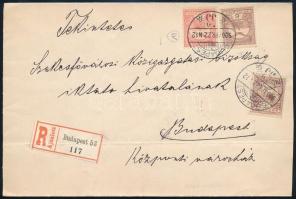 Tekintetes
Székesfővárosi Közigazgatási bizottság
iktató hivatalának
Budapest
Központi városház
R
Ajánlott
Budapest 52
117